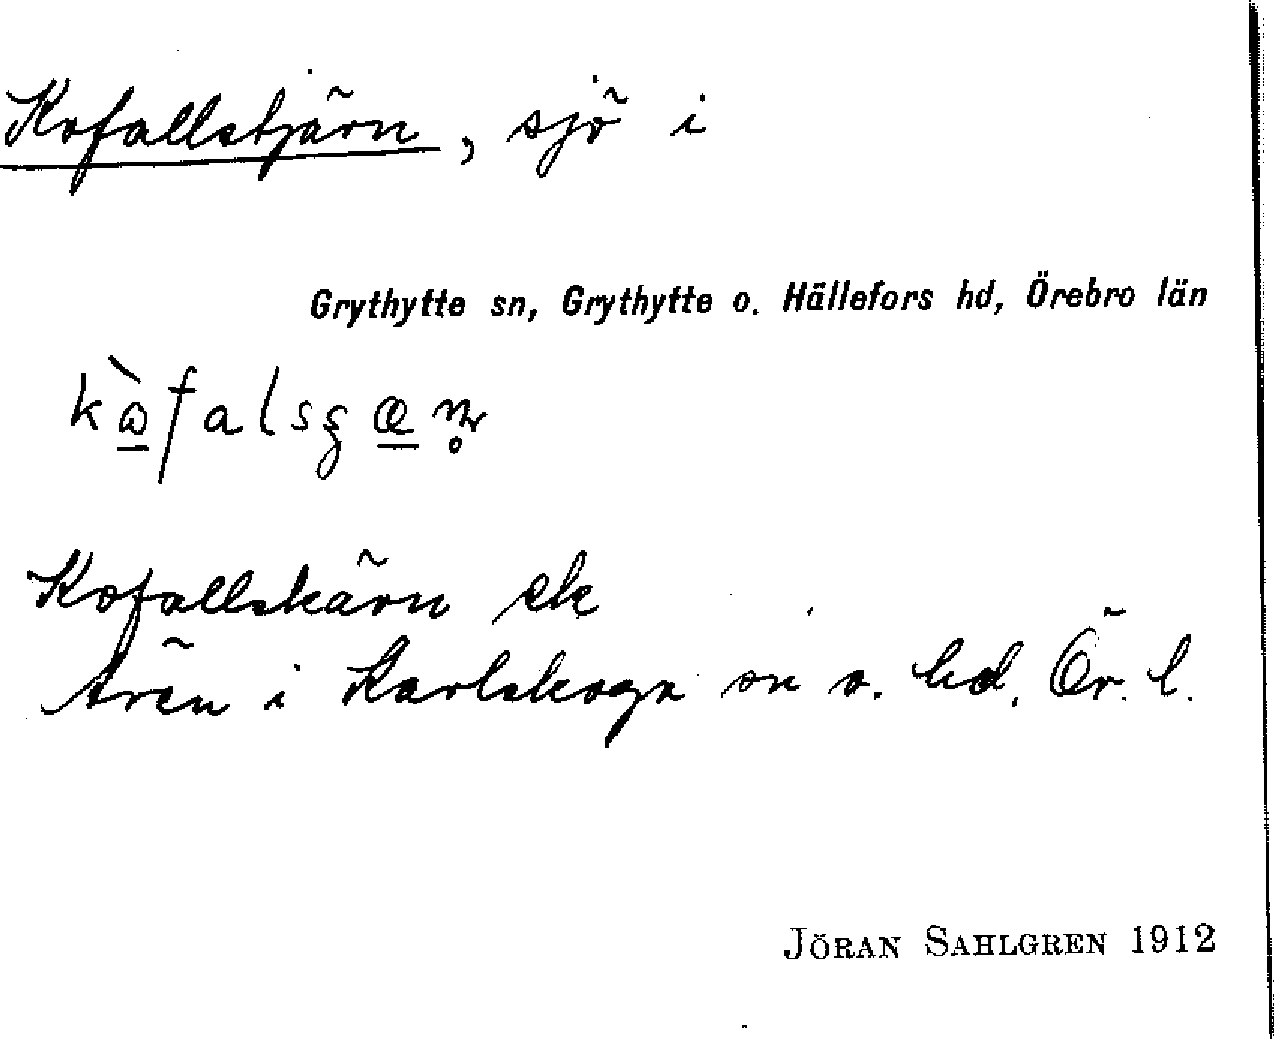 Kofallstjärn, sjö i
Grythytte sn, Grythytte o. Hällefors hd, Örebro län
kɷ̀falsʒæṇ
Kofallskärn ek
även i Karlskoga sn o. hd, Ör. l.
JÖRAN SAHLGREN 1912